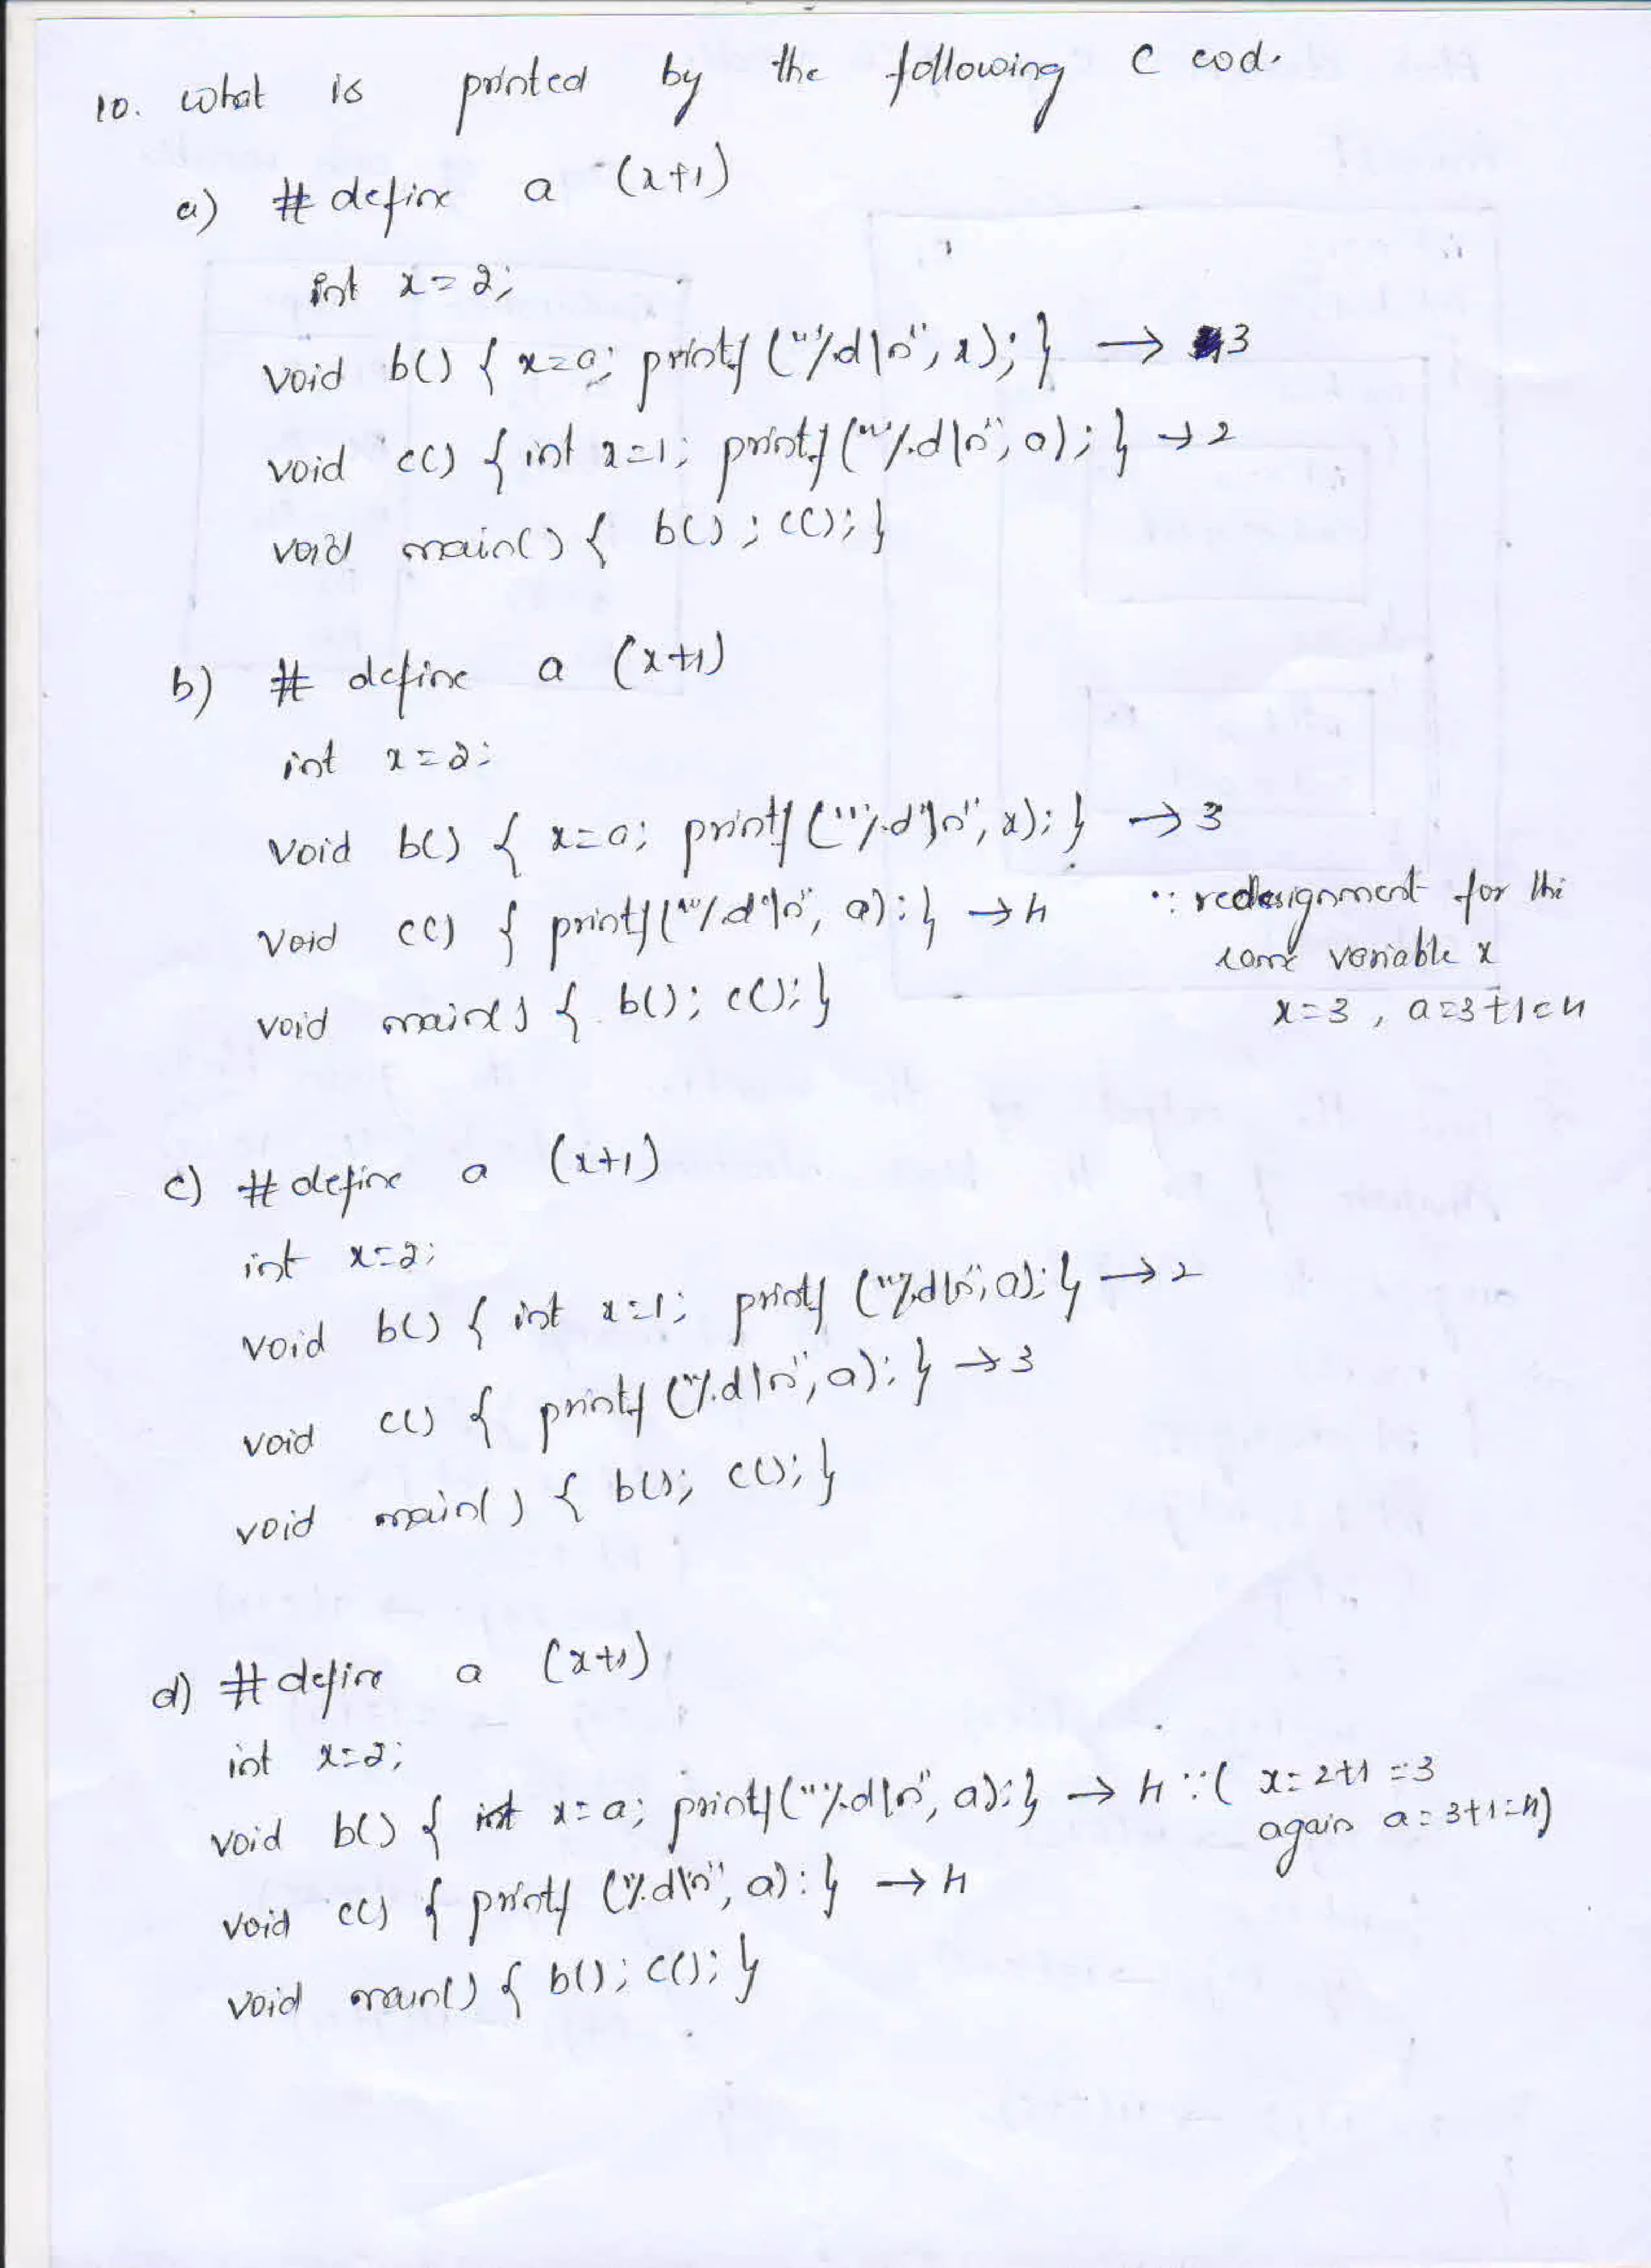 10. What is printed by the following C cod.
a) # define a (x+1)
int x=2;
void b() { x=a; printf ("%d\n", x); } → 3
void c() { int x=1; printf("%d\n", a); } → 2
void main() { b(); c(); }
b) # define a (x+1)
int x=2;
void b() { x=a; printf ("%d\n", x); } → 3
void c() { printf("%d\n", a); } → 4 ∵ redesignment for the
same variable x
void main() { b(); c(); }
x=3, a=3+1=4
c) # define a (x+1)
int x=2;
void b() { int x=1; printf ("%d\n", a); } → 2
void c() { printf ("%d\n", a); } → 3
void main() { b(); c(); }
d) # define a (x+1)
int x=2;
void b() { x=a; printf("%d\n", a); } → 4 ∵ ( x=2+1=3
again a=3+1=4)
void c() { printf ("%d\n", a); } → 4
void main() { b(); c(); }